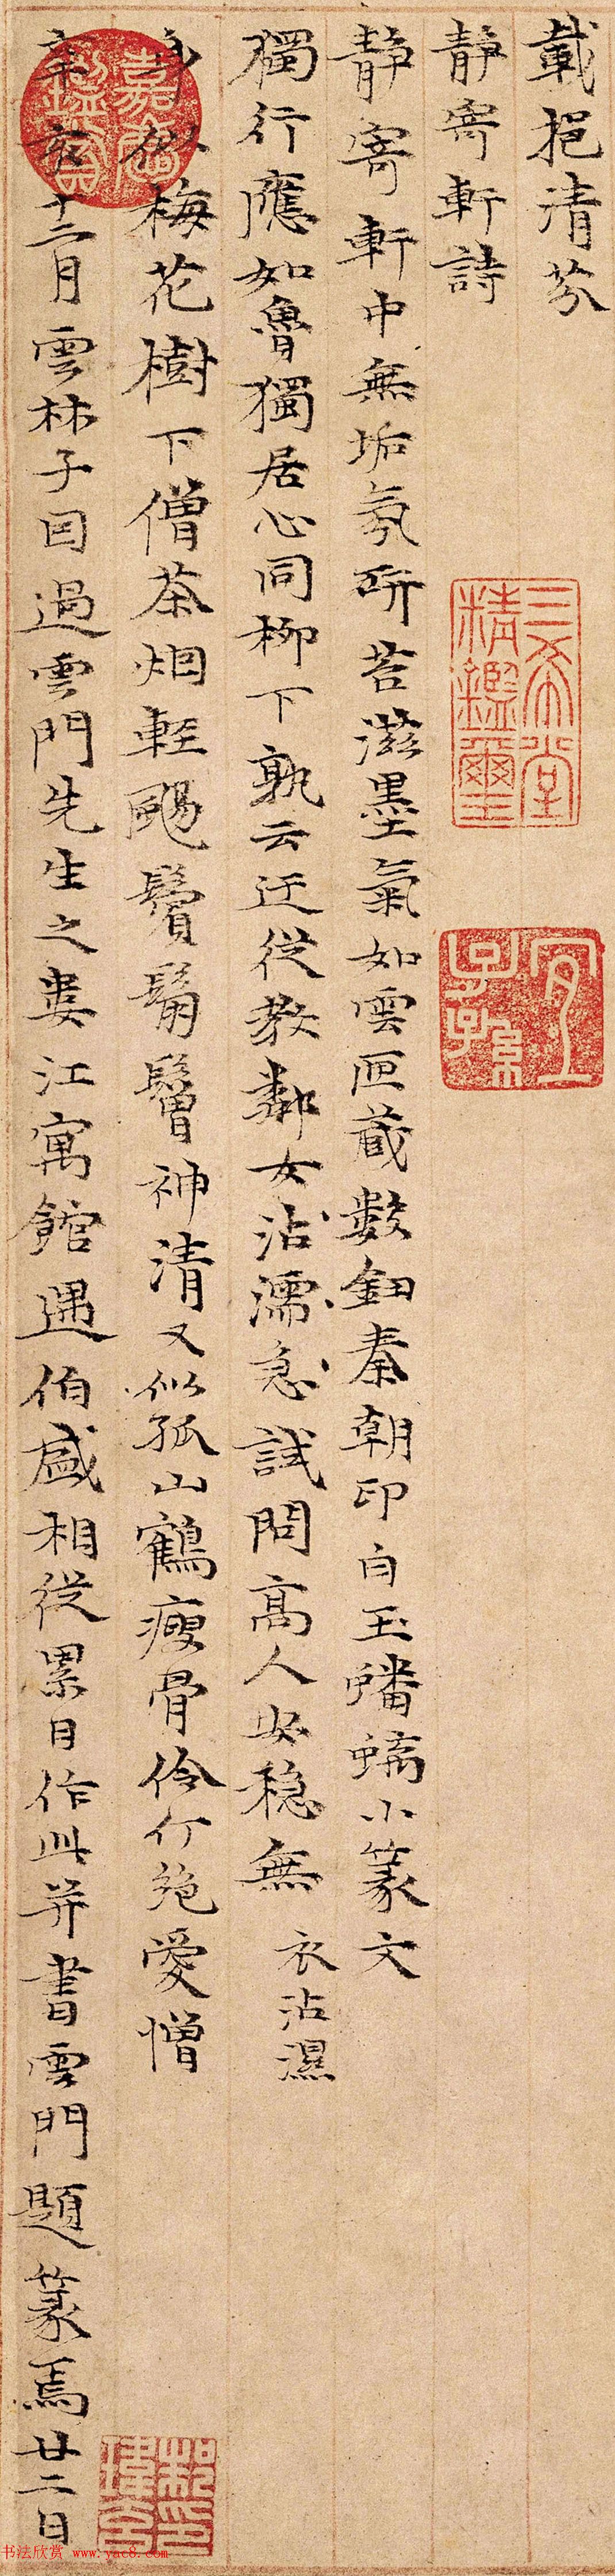 載挹清芬
靜寄軒詩
靜寄軒中無垢氛研苔滋墨氣如雲匣藏數鈕秦朝印白玉蟠螭小篆文
獨行應如魯獨居心同柳下孰云迂從教鄰女沾濡急試問高人安穩無 衣沾濕
身似梅花樹下僧茶烟輕颺鬢鬅鬙神清又似孤山鶴瘦骨伶仃絶愛憎
辛亥十二月雲林子因過雲門先生之婁江寓館遇伯盛相從累日作此并書雲門題篆焉廿二日
三希堂精鑑璽
宜子孫
嘉慶鑑賞
書法欣赏 www.yac8.com